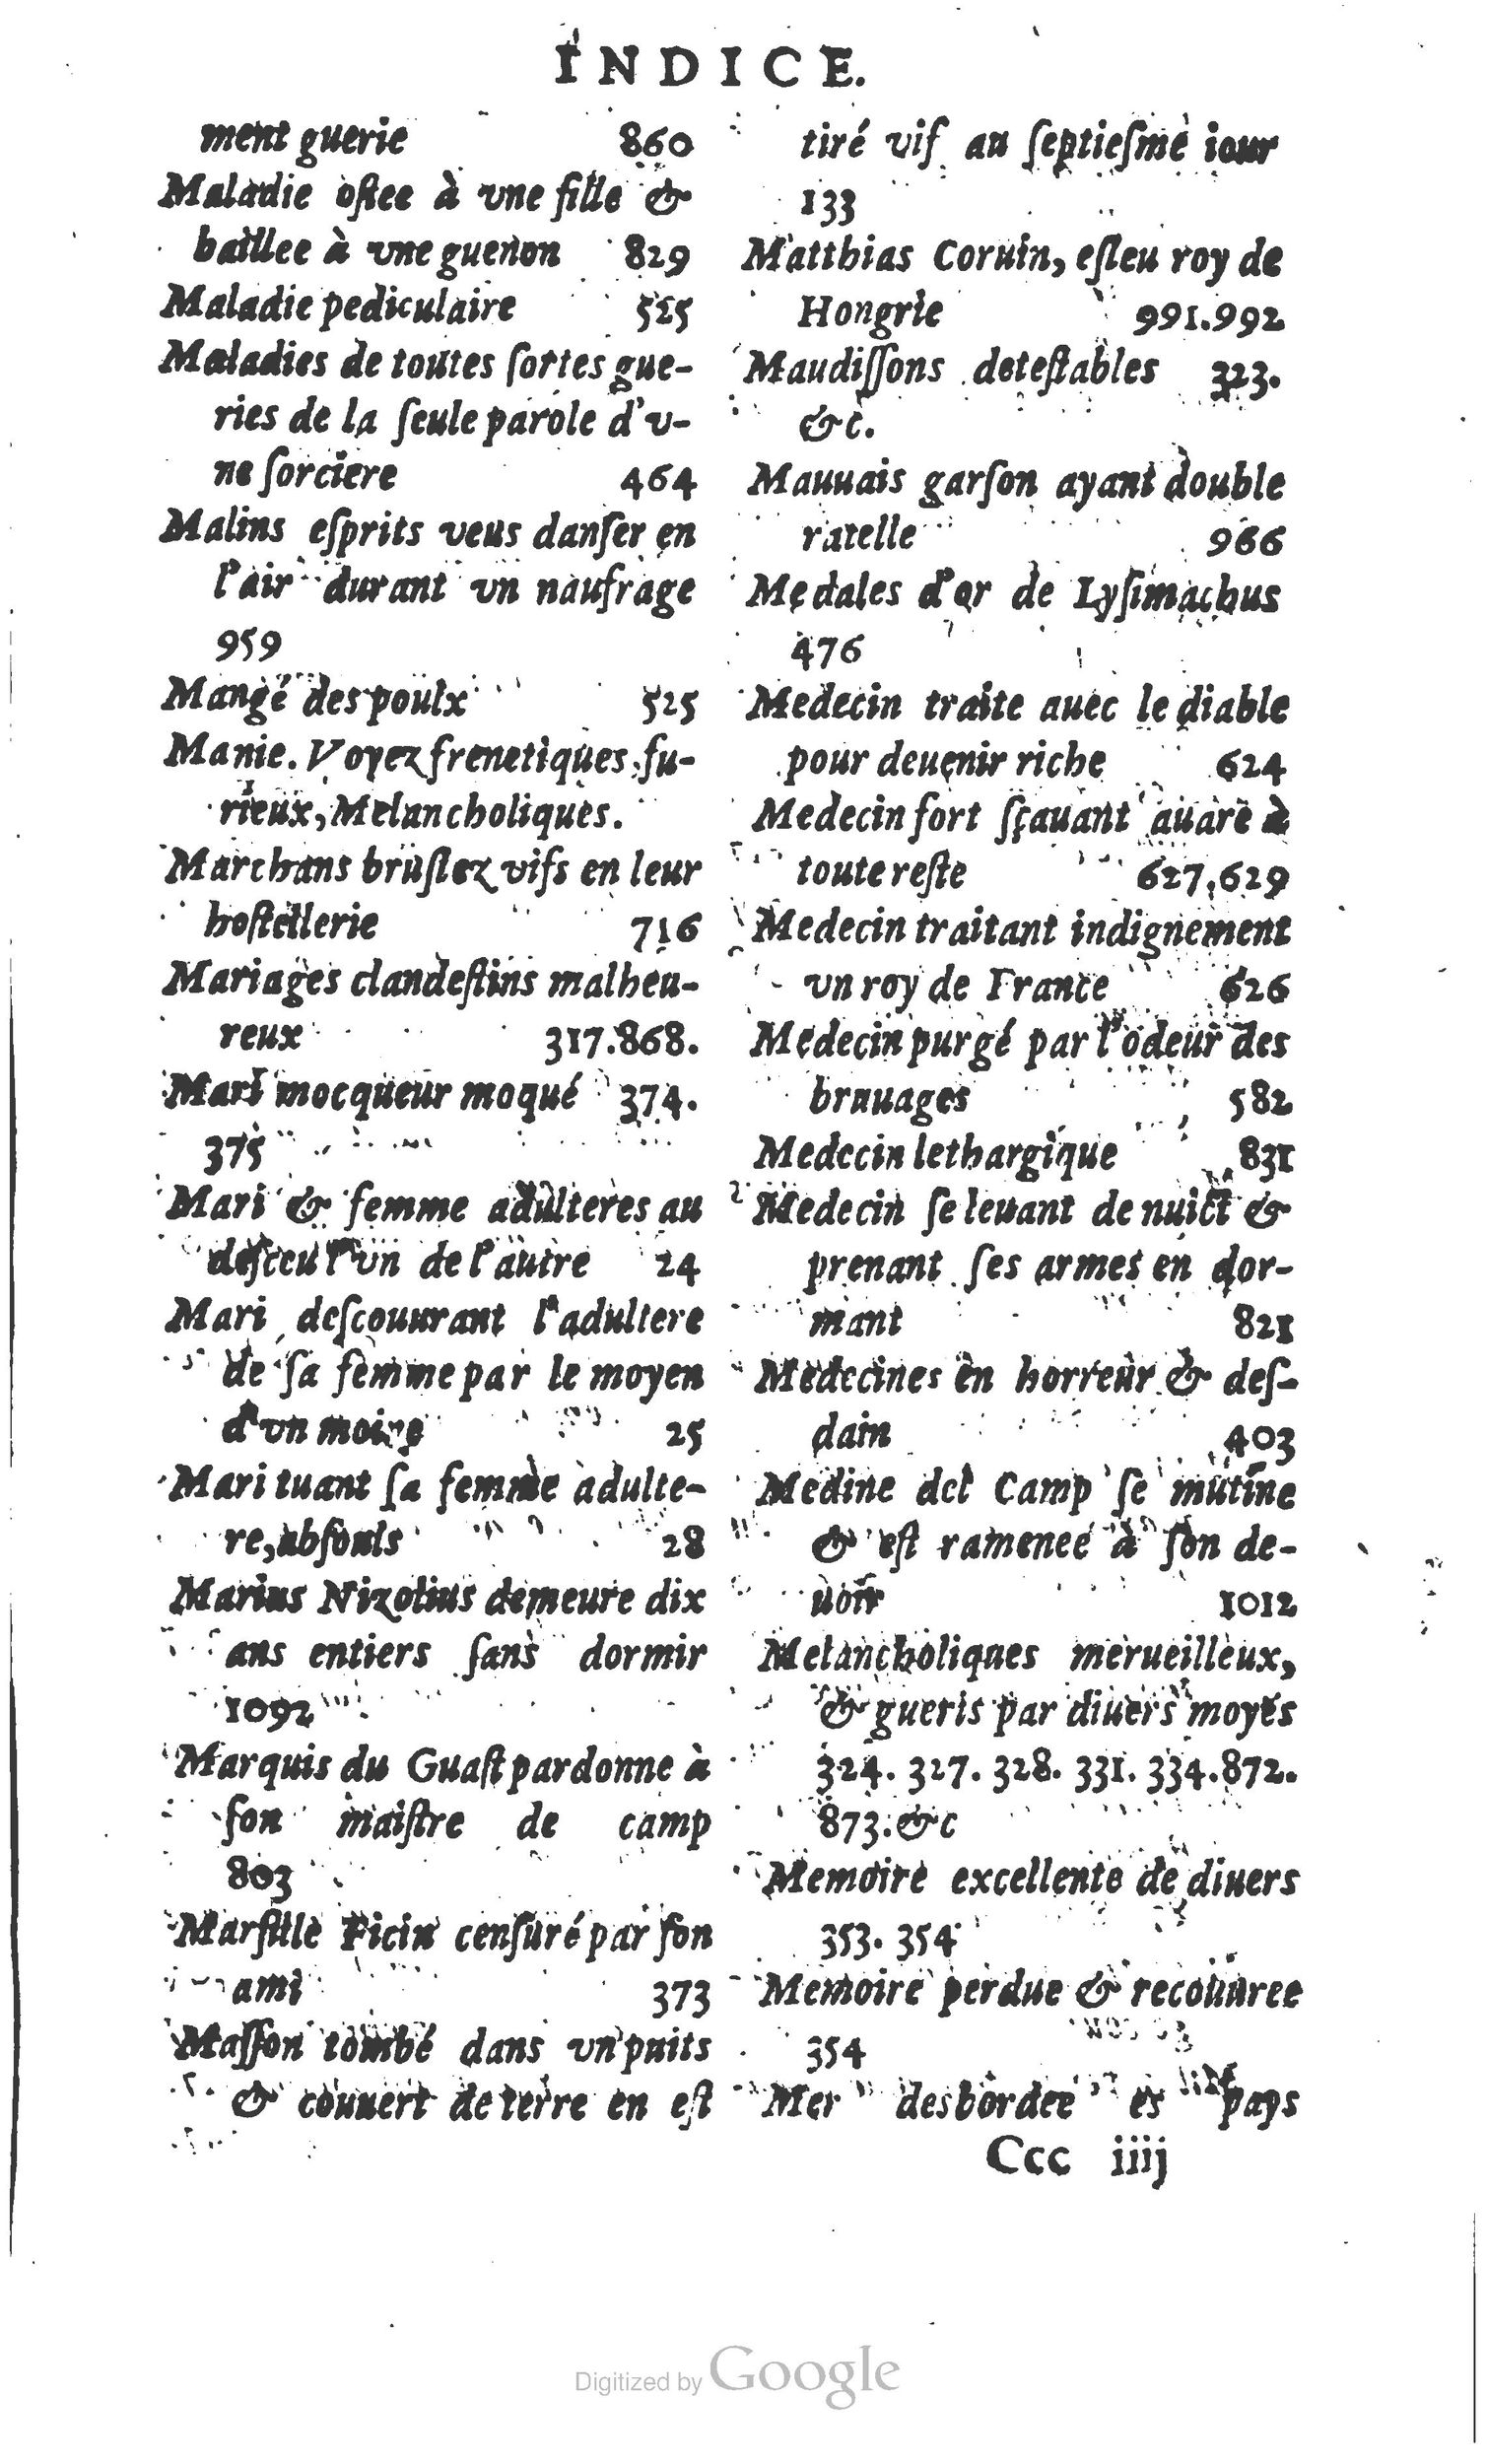 INDICE.
ment guerie 860
Maladie ostee à vne fille &
baillee à vne guenon 829
Maladie pediculaire 525
Maladies de toutes sortes gue-
ries de la seule parole d'v-
ne sorciere 464
Malins esprits veus danser en
l'air durant vn naufrage
959
Mangé des poulx 525
Manie. Voyez frenetiques, fu-
rieux, Melancholiques.
Marchans bruslez vifs en leur
hostellerie 716
Mariages clandestins malheu-
reux 317.868.
Mari mocqueur moqué 374.
375
Mari & femme adulteres au
desceu l'vn de l'autre 24
Mari descouurant l'adultere
de sa femme par le moyen
d'vn moine 25
Mari tuant sa femme adulte-
re, absouls 28
Marius Nizolius demeure dix
ans entiers sans dormir
1092
Marquis du Guast pardonne à
son maistre de camp
803
Marsille Ficin censuré par son
ami 373
Masson tombé dans vn puits
& couuert de terre en est
tiré vif au septiesme iour
133
Matthias Coruin, esleu roy de
Hongrie 991.992
Maudissons detestables 323.
&c.
Mauuais garson ayant double
ratelle 966
Medales d'or de Lysimachus
476
Medecin traite auec le diable
pour deuenir riche 624
Medecin fort sçauant auare à
toute reste 627.629
Medecin traitant indignement
vn roy de France 626
Medecin purgé par l'odeur des
bruuages 582
Medecin lethargique 831
Medecin se leuant de nuict &
prenant ses armes en dor-
mant 821
Medecines en horreur & des-
dain 403
Medine del Camp se mutine
& est ramenee à son de-
uoir 1012
Melancholiques merueilleux,
& gueris par diuers moyēs
324. 327. 328. 331. 334. 872.
873. &c
Memoire excellente de diuers
353. 354
Memoire perdue & recouuree
354
Mer desbordee es pays
Ccc iiij
Digitized by Google